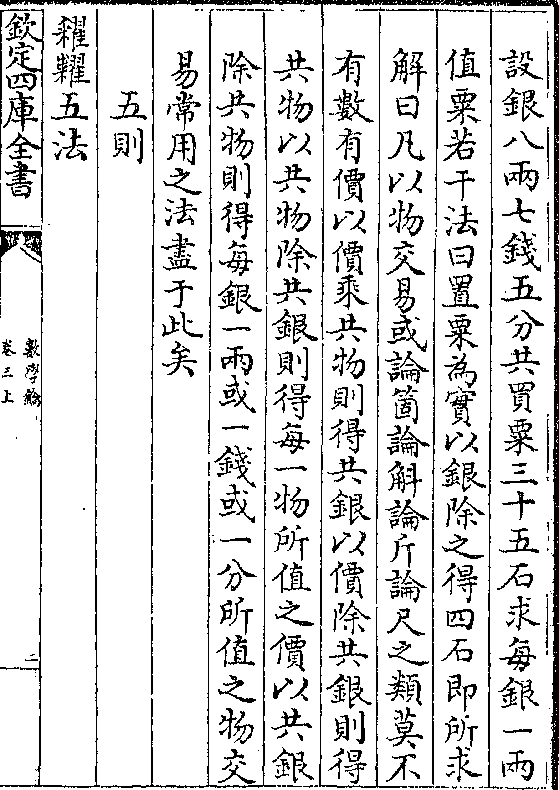 設銀八兩七錢五分共買粟三十五石求每銀一兩
值粟若干法曰置粟為實以銀除之得四石即所求
解曰凡以物交易或論箇論斛論斤論尺之類莫不
有數有價以價乘共物則得共銀以價除共銀則得
共物以共物除共銀則得每一物所值之價以共銀
除共物則得每銀一兩或一錢或一分所值之物交
易常用之法盡于此矣
五則
糴糶五法
欽定四庫全書
數學鑰
卷三上
二